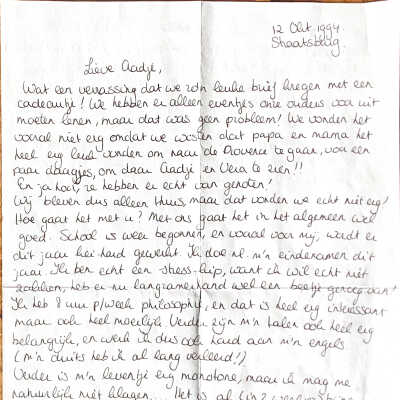 12 Okt 1994
Lieve Aadje,
Wat een verrassing dat we zo'n leuke brief kregen met een
cadeautje! We hebben er alleen eventjes onze ouders voor uit
moeten lenen, maar dat was geen probleem! We vonden het
vooral niet erg omdat we wisten dat papa en mama het
heel erg leuk vonden om naar de Provence te gaan, voor een
paar daagjes, om daar Aadje en Vera te zien!!
En ja hoor, ze hebben er echt van genoten!
Wij bleven dus alleen thuis maar dat vonden we echt niet erg!
Hoe gaat het met u? Met ons gaat het in het algemeen wel
goed. School is weer begonnen, en vooral voor mij, wordt er
dit jaar kei-hard gewerkt. Ik doe nl. m'n eindexamen dit
jaar. Ik ben echt een stress-kip, want ik wil echt niet
zakken, heb er nu langzamerhand wel een beetje genoeg van!
Ik heb 8 uur p/week philosophy, en dat is heel erg interessant
maar ook heel moeilijk. Verder zijn m'n talen ook heel erg
belangrijk, en werk ik dus ook hard aan m'n engels
(m'n duits heb ik al lang verleerd!)
Verder is m'n leventje erg monotone, maar ik mag me
natuurlijk niet klagen.... Het is al